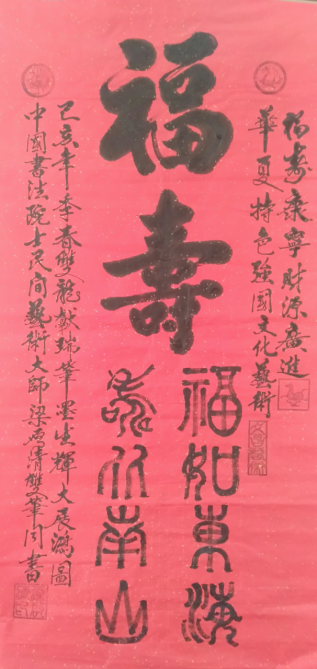 福壽康寧財源廣進
華夏特色強國文化藝術
福壽
福如東海
壽比南山
己亥年季春雙龍獻瑞筆墨生輝大展鴻圖
中國書法院士民間藝術大師梁石清雙筆同書